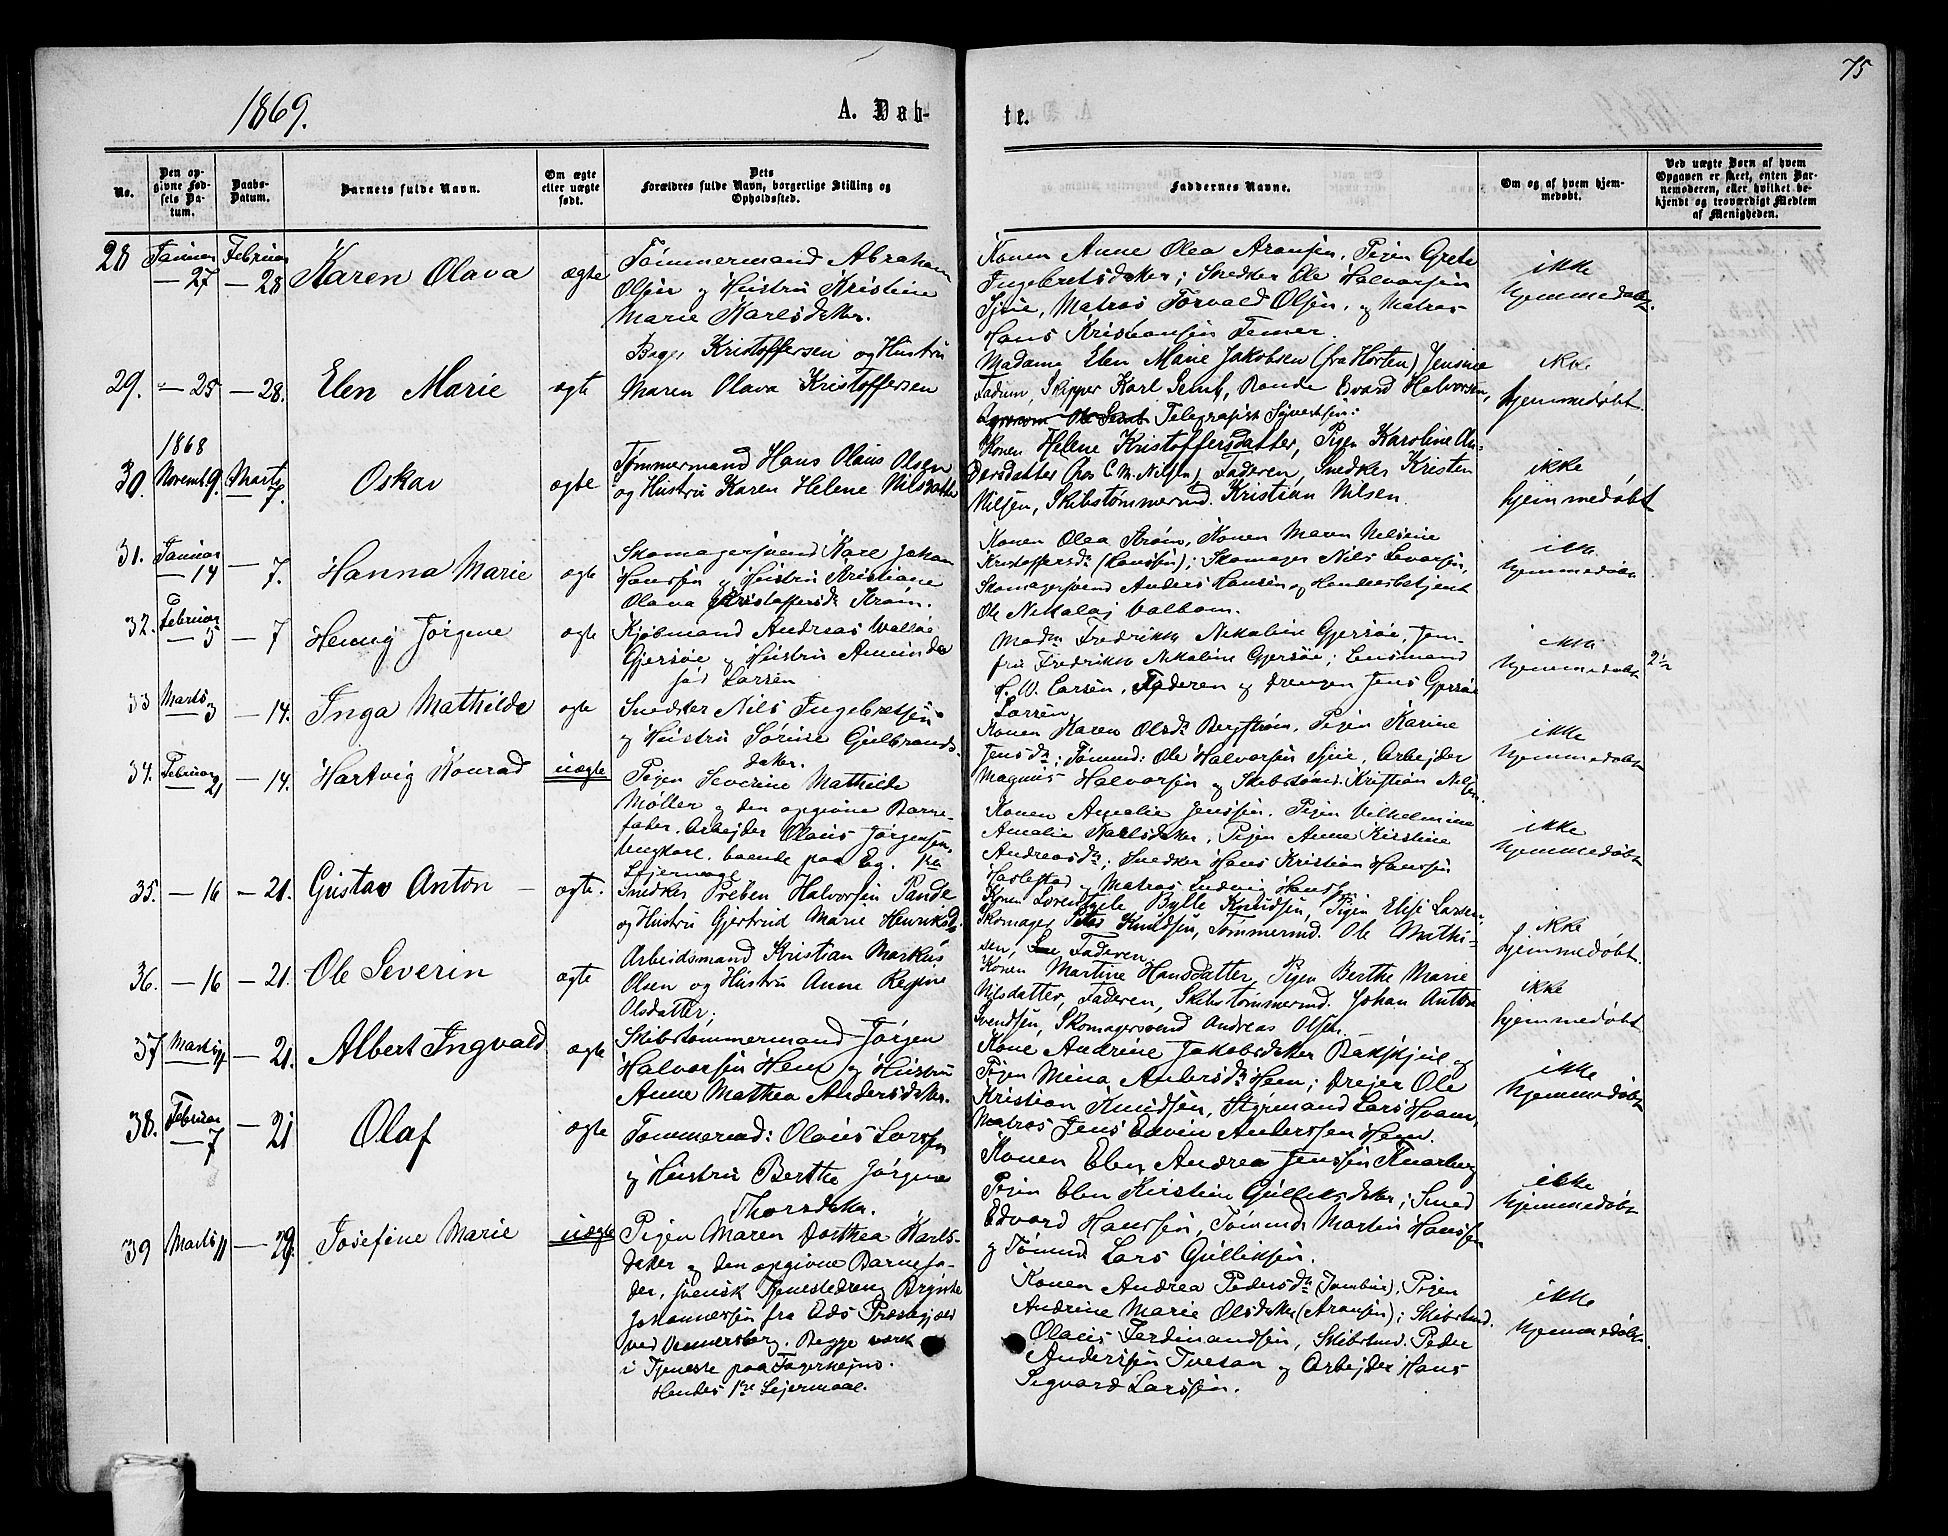 1869.
A. Døb-
No.
Den op-
givne Fød-
sels Da-
tum.
Daabs-
Datum.
Barnets fulde Navn.
Om ægte
eller uægte
født.
Dets
Forældres fulde Navn, borgerlige Stilling og
Opholdssted.
28 Januar
— 27
Februar
— 28
Karen Olava
ægte
Tømmermand Abraham
Olsen og Hustru Kristine
Marie Karlsdatter.
29. — 25 — 28. Elen Marie ægte
Bager Kristoffersen og Hustru
Maren Olava Kristoffersen
1868
30. Novemb. 9. Marts 7. Oskar ægte
Tømmermand Hans Olaus Olsen
og Hustru Karen Helene Nilsdatter
31. Januar
— 14 — 7. Hanna Marie ægte
Skomagersvend Karl Johan
Hanssen og Hustru Kristiane
Olava Kristoffersdr Strøm.
32. Februar
— 5 — 7 Henny Jørgine ægte
Kjøbmand Andreas Walløe
Gjersøe og Hustru Aminda
fød Larsen
33 Marts 3 — 14. Inga Mathilde ægte
Snedker Nils Ingebretsen
og Hustru Sørine Gulbrands-
datter.
34. Februar 21 — 14. Hartvig Konrad uægte
Pigen Severine Mathilde
Møller og den opgivne Barne-
fader, Arbejder Olaus Jørgensen,
Ungkarl, boende paa Eg. paa
35. — 16 — 21. Gustav Anton — ægte.
Snedker Preben Halvorsen Pande
og Hustru Gjertrud Marie Henriksd.
36. — 16 — 21. Ole Severin ægte
Arbeidsmand Kristian Markus
Olsen og Hustru Anne Regine
Olsdatter;
37 Marts 11 — 21. Albert Ingvald ægte
Skibstømmermand Jørgen
Halvorsen Hem og Hustru
Anne Mathea Andersdatter.
38. Februar
— 7 — 21 Olaf ægte
Tømmermd: Olaus Larssen
og Hustru Berthe Jørgine
Thorsdatter.
39 Marts 11 — 29. Josefine Marie uægte
Pigen Maren Dorthea Karls-
datter og den opgivne Barnefa-
der, svensk Tjenestedreng
Johannessen fra Eds Præstegjeld
ved Wennersborg. Begge været
i Tjeneste paa Fagerheim.
Hendes 1ste Lejermaal.
75
te.
Faddernes Navne.
Om og af hvem hjem-
medøbt.
Ved uægte Børn af hvem
Opgaven er skeet, enten Bar-
nemoderen, eller hvilket be-
kjendt og troværdigt Medlem
af Menigheden.
Konen Anne Olea Aronsen, Pigen Grete
Ingebretsdatter; Snedker Ole Halvorsen
Sjue, Matros Torvald Olsen, og Matros
Hans Kristiansen Temer.
ikke
hjemmedøbt.
Madame Elen Marie Jakobsen (fra Horten), Jensine
Fadum, Skipper Karl Semb, Bonde Edvard Halvorsen,
Agronom Ole Semb Telegrafist Syvertsen:
ikke
hjemmedøbt.
Konen Helene Kristoffersdatter, Pigen Karoline An-
dersdatter (hos C. M. Nilsen), Faderen, Snedker Kristen
Nilsen, Skibstømmermd. Kristian Nilsen.
ikke
hjemmedøbt
Konen Olea Strøm, Konen Maren Nilsine
Kristoffersdr (Hanssen); Skomager Nils Sevarsen,
Skomagersvend Anders Hansen og Handelsbetjent
Ole Nikolaj Valbom.
ikke
hjemmedøbt
Madm Fredrikke Nikoline Gjersøe, Jom-
fru Fredrikke Nikoline Gjersøe; Lensmand
L. W. Larsen, Faderen og Drengen Jens Gjersøe
Larsen
ikke
hjemmedøbt
2 1/2
Konen Karen Olsdr Bergstrøm, Pigen Karine
Jensdr; Tømmd: Ole Halvorsen Sjue, Arbejder
Magnus Halvorsen og Skibstømd: Kristian Nilsen.
ikke
hjemmedøbt
Konen Amalie Jenssen, Pigen Vilhelmine
Amalie Karlsdatter, Pigen Anne Kirstine
Andreasdr; Snedker Hans Kristian Hanssen
Haslestad og Matros Ludvig Hanssen
ikke
hjemmedøbt
Konen Lovendgele Bylle Knudsen, Pigen Elise Larsen,
Skomager Peter Knudsen, Tømmermd. Ole Mathi-
sen, Faderen.
ikke
hjemmedøbt.
Konen Martine Hansdatter, Pigen Berthe Marie
Nilsdatter, Faderen, Skibstømmermd. Johan Anton
Svendsen, Skomagersvend Andreas Olsen.
ikke
hjemmedøbt
Kone Andrine Jakobsdatter Bakskjul og
Pigen Mina Andersdr Hem; Drejer Ole
Kristian Knudsen, Styrmand Lars Hvam,
Matros Jens Edvin Anderssen Hem.
ikke
hjemmedøbt
Konen Elen Andrea Jenssen Knarberg
Pigen Elen Kirstine Gulliksdatter; Smed
Edvard Hanssen, Tømmd: Martin Hanssen
og Tømmd Lars Gulliksen.
ikke
hjemmedøbt
Konen Andrea Pedersdr, Pigen
Andrine Marie Olsdatter (Aronsen); Skibstmd.
Olaus Ferdinandsen, Skibstmd. Peder
Anderssen Tvesan og Arbejder Hans
Sigvard Larssen.
ikke
hjemmedøbt